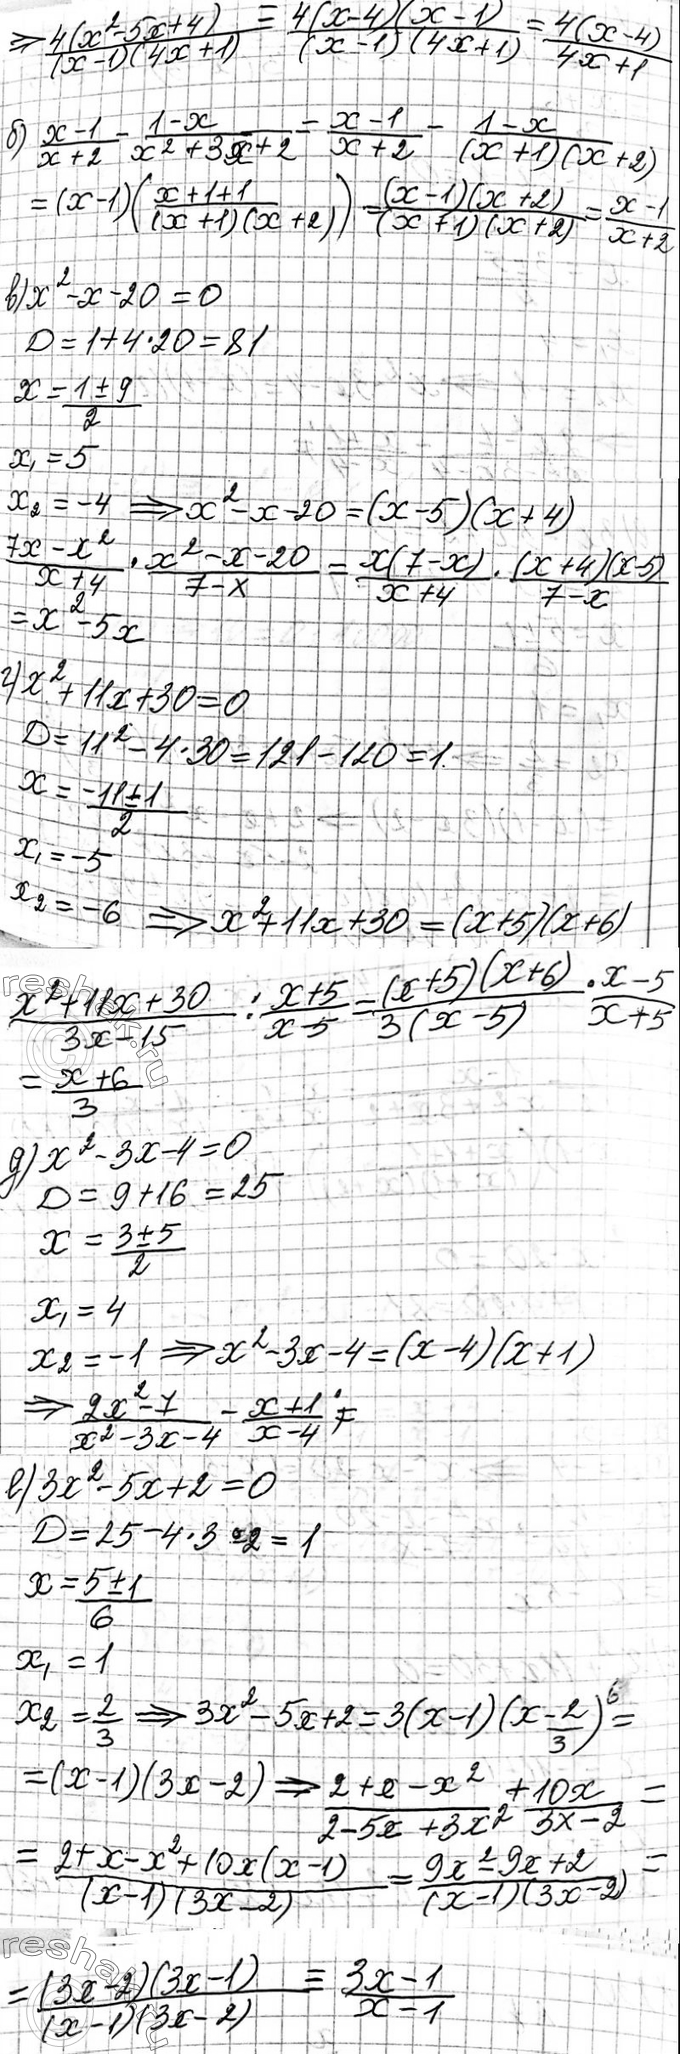 ⇒ 4(x²-5x+4)/(x-1)(4x+1) = 4(x-4)(x-1)/(x-1)(4x+1) = 4(x-4)/4x+1
б) x-1/x+2 - 1-x/x²+3x+2 = x-1/x+2 - 1-x/(x+1)(x+2)
= (x-1)(x+1+1/(x+1)(x+2)) = (x-1)(x+2)/(x+1)(x+2) = x-1/x+2
в) x²-x-20=0
D=1+4·20=81
x=1±9/2
x₁=5
x₂=-4 ⇒ x²-x-20=(x-5)(x+4)
7x-x²/x+4 · x²-x-20/7-x = x(7-x)/x+4 · (x+4)(x-5)/7-x
=x²-5x
г) x²+11x+30=0
D=11²-4·30=121-120=1.
x=-11±1/2
x₁=-5
x₂=-6 ⇒ x²+11x+30=(x+5)(x+6)
x²+11x+30/3x-15 : x+5/x-5 = (x+5)(x+6)/3(x-5) · x-5/x+5
= x+6/3
д) x²-3x-4=0
D=9+16=25
x=3±5/2
x₁=4
x₂=-1 ⇒ x²-3x-4=(x-4)(x+1)
⇒ 2x²-7/x²-3x-4 - x+1/x-4 =
е) 3x²-5x+2=0
D=25-4·3·2=1
x=5±1/6
x₁=1
x₂=2/3 ⇒ 3x²-5x+2=3(x-1)(x-2/3)=
=(x-1)(3x-2) ⇒ 2+x-x²/2-5x+3x² + 10x/3x-2 =
= 2+x-x²+10x(x-1)/(x-1)(3x-2) = 9x²-9x+2/(x-1)(3x-2) =
= (3x-2)(3x-1)/(x-1)(3x-2) = 3x-1/x-1